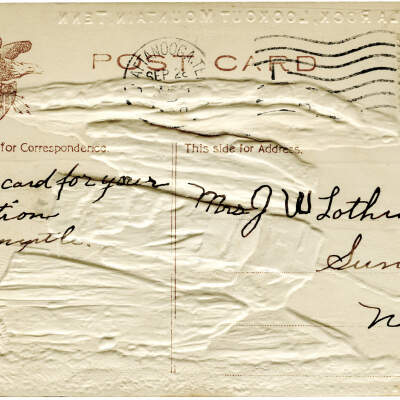 A ROCK, LOOKOUT MOUNTAIN TENN
POST CARD
CHATTANOOGA TE
SEP 25
for Correspondence.
This side for Address.
card for your
tion
myrtle.
Mrs J W Lothr
Sun
N